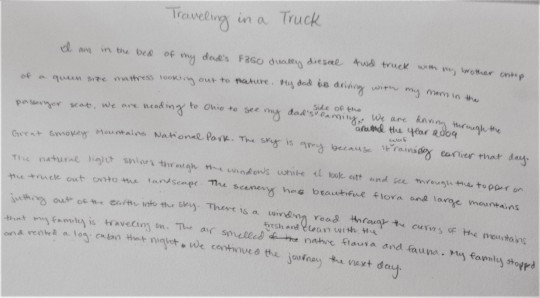 Traveling in a Truck
I am in the bed of my dad's F350 dually diesel 4wd truck with my brother ontop
of a queen size mattress looking out to nature. My dad is driving with my mom in the
passenger seat. We are heading to Ohio to see my dad's side of the family. We are driving through the
around the year 2009
Great Smokey Mountains National Park. The sky is grey because it was rainy earlier that day.
The natural light shines through the windows while I look out and see through the topper on
the truck out onto the landscape. The scenery has beautiful flora and large mountains
jutting out of the earth into the sky. There is a winding road through the curves of the mountains
that my family is traveling on. The air smelled fresh and clean with the native flaura and fauna. My family stopped
and rented a log cabin that night. We continued the journey the next day.